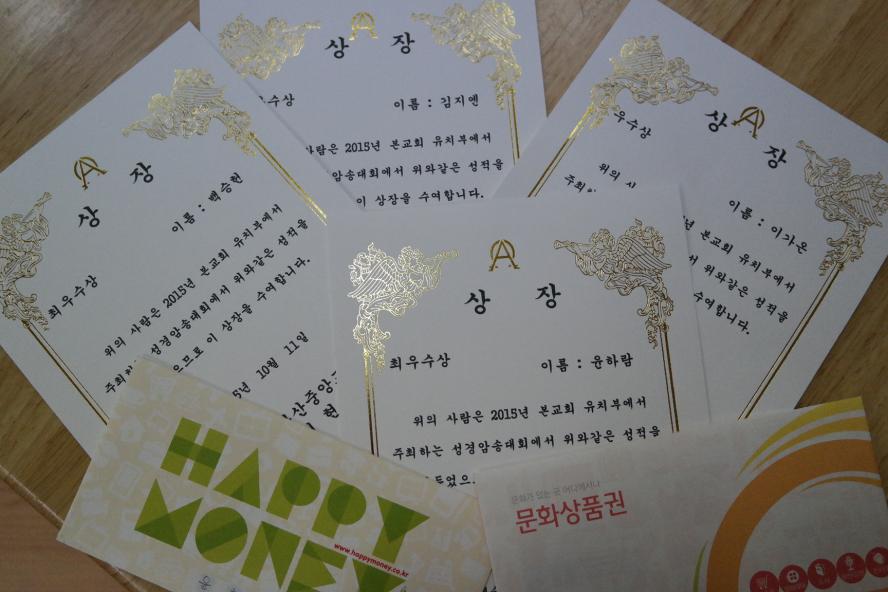 상 장
이름 : 김지엔
사람은 2015년 본교회 유치부에서
암송대회에서 위와같은 성적을
이 상장을 수여합니다.
상 장
이름 : 백승헌
최우수상
위의 사람은 2015년 본교회 유치부에서
성경암송대회에서 위와같은 성적을
므로 이 상장을 수여합니다.
10월 11일
상 장
우수상
이름 : 이가온
위의
본교회 유치부에서
위와같은 성적을
수여합니다.
상 장
최우수상 이름 : 윤하람
위의 사람은 2015년 본교회 유치부에서
주최하는 성경암송대회에서 위와같은 성적을
HAPPY
MONEY
www.happymoney.co.kr
문화가 있는 곳 어디에서나
문화상품권